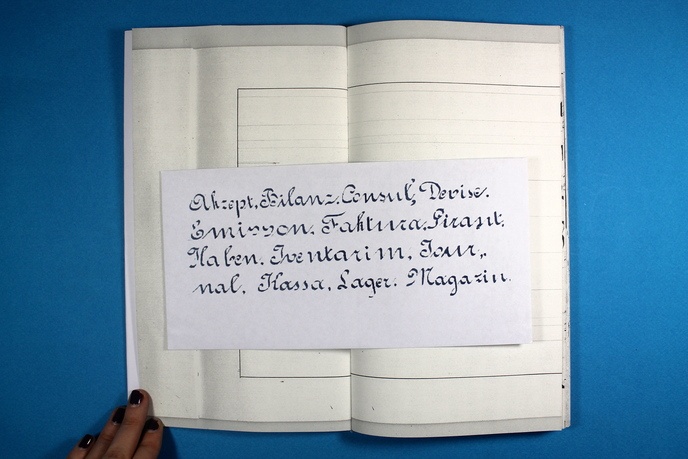 Akzept, Bilanz, Consul, Devise.
Emisson, Faktura, Giraut,
Haben. Iventarim, Jour„
nal, Kassa, Lager. Magazin.